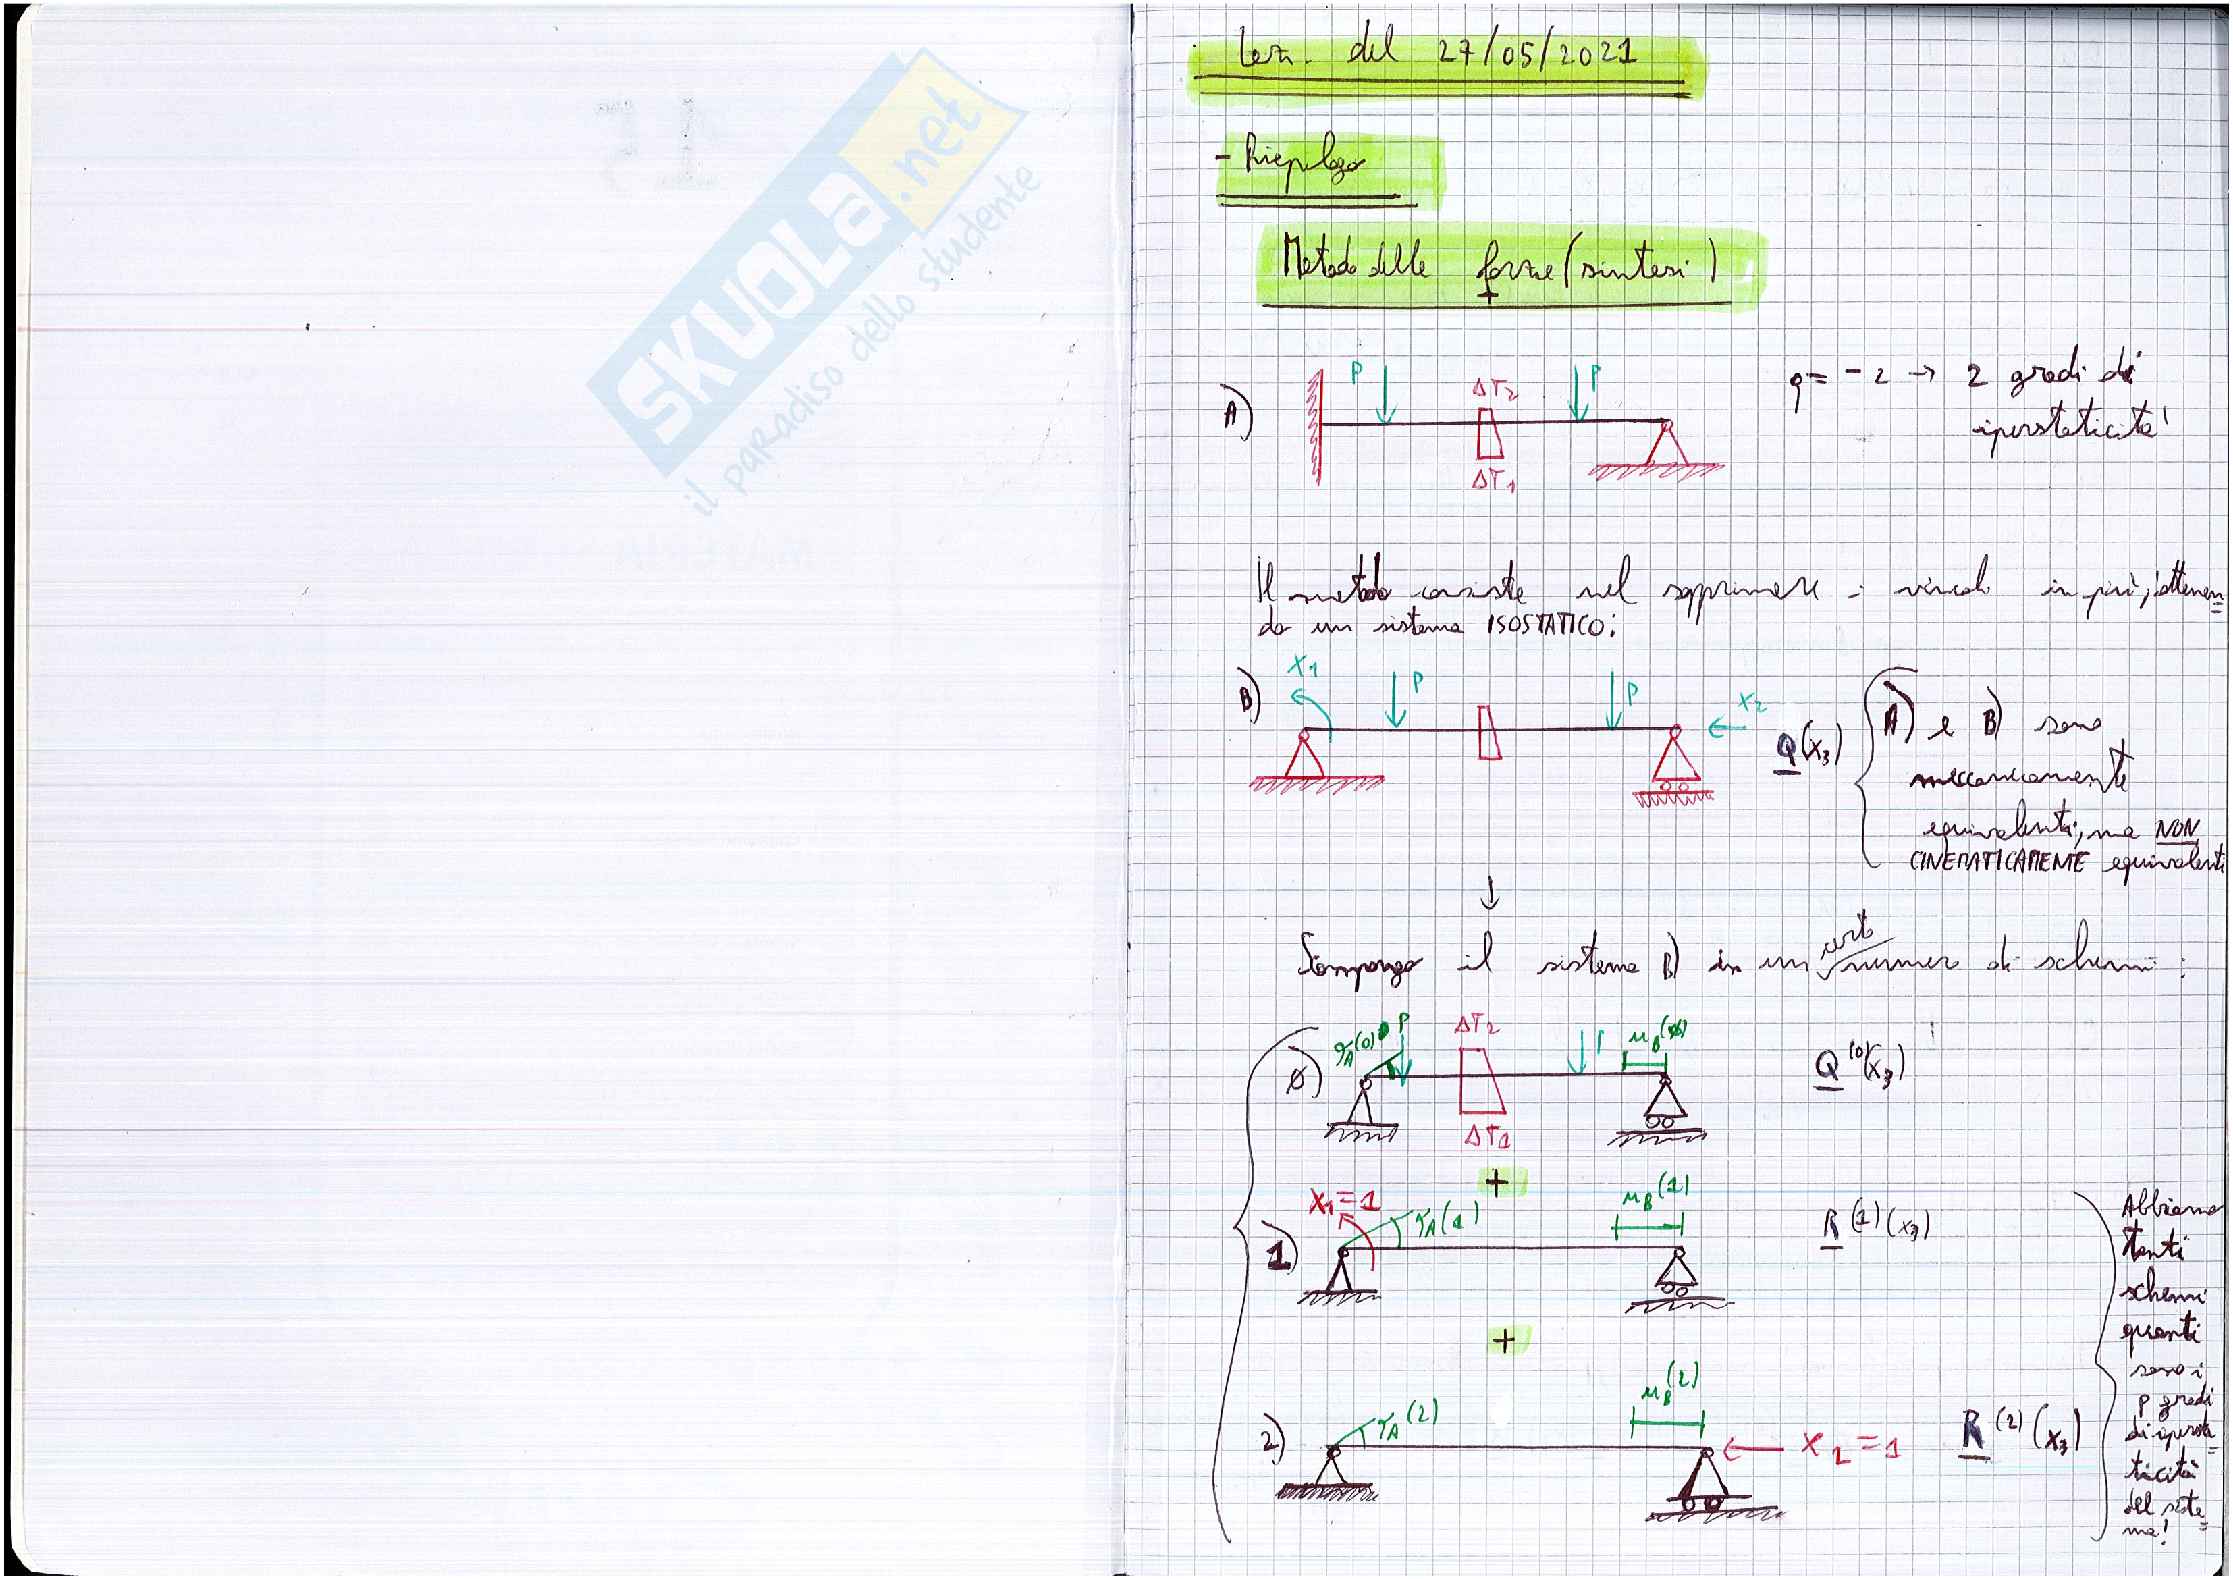 SKUOLA.net
il paradiso dello studente
Lez. del 27/05/2021
- Riepilogo
Metodo delle forze (sintesi)
A)
P
ΔT2
P
ΔT1
q = -2 → 2 gradi di
iperstaticità
Il metodo consiste nel sopprimere i vincoli in più, ottenen=
do un sistema ISOSTATICO:
B)
X1
P
P
X2
Q(x3)
A) e B) sono
meccanicamente
equivalenti, ma NON
CINEMATICAMENTE equivalenti
↓
Scompongo il sistema B) in un certo numero di schemi:
0)
φA(0)
P
ΔT2
P
uB(0)
ΔT1
Q(0)(x3)
+
1)
X1=1
φA(1)
uB(1)
R(1)(x3)
+
2)
φA(2)
uB(2)
X2=1
R(2)(x3)
Abbiamo
tanti
schemi
quanti
sono i
p gradi
di ipersta=
ticità
del siste=
ma!